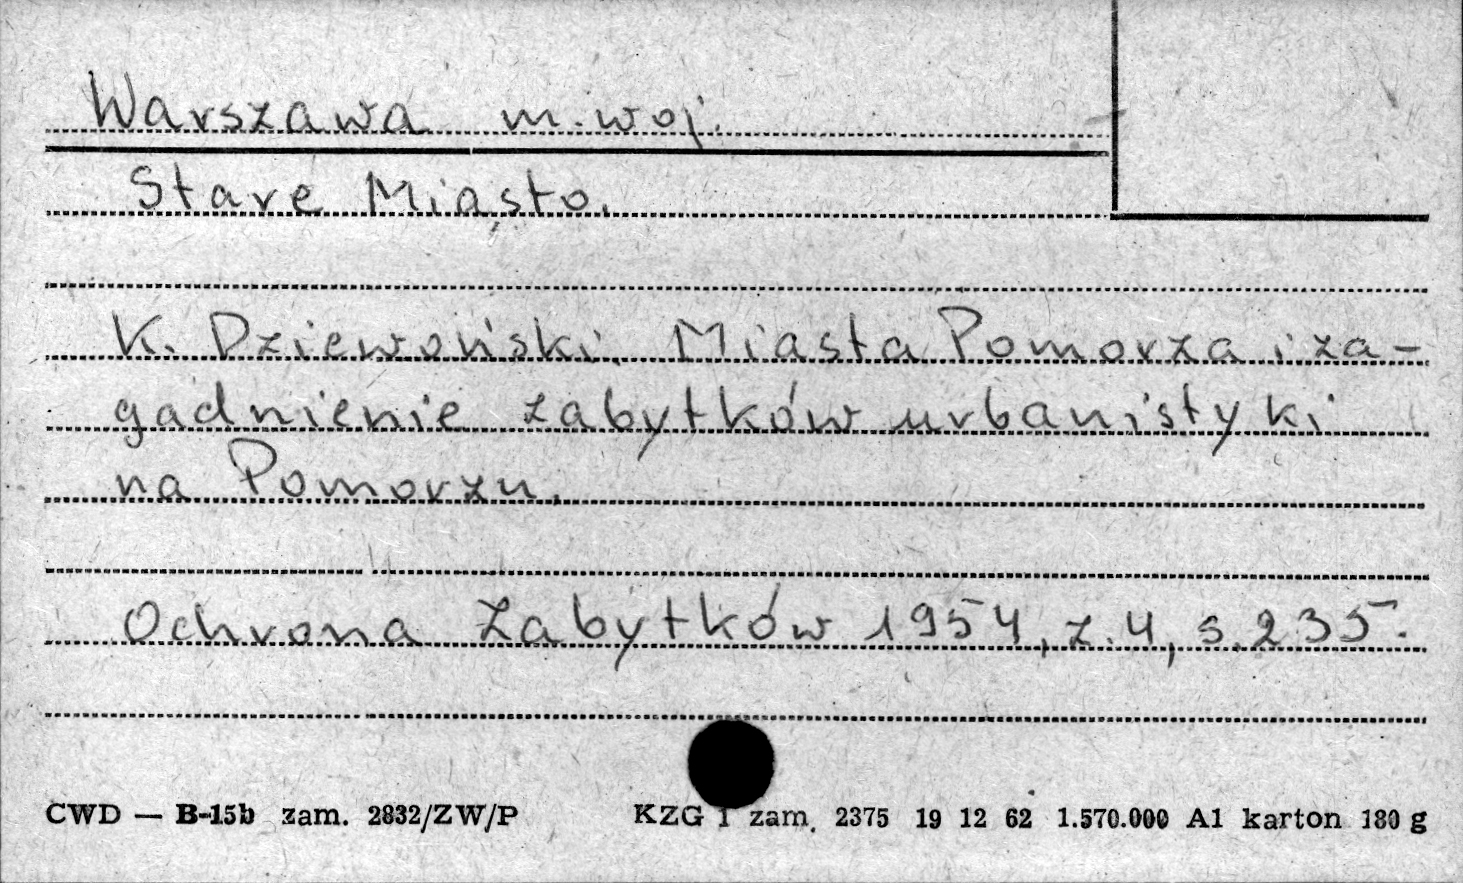 Warszawa m. woj.
Stare Miasto.
K. Dziewoński. Miasta Pomorza i za-
gadnienie zabytków urbanistyki
na Pomorzu.
Ochrona Zabytków 1954, z. 4, s. 235.
CWD — B-15b zam. 2832/ZW/P KZG 1 zam. 2375 19 12 62 1.570.000 A1 karton 180 g